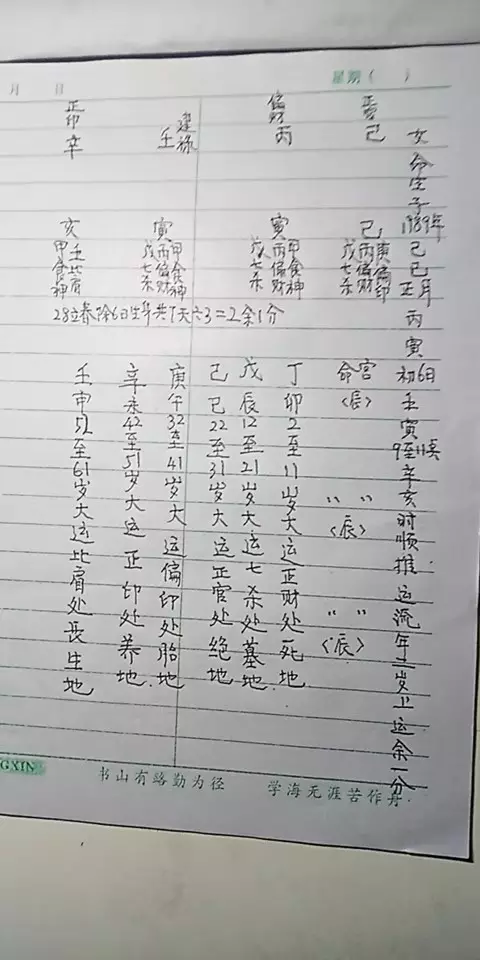 月 日 星期( )
女命生于1989年己巳正月丙寅初6日壬寅9至11点辛亥时顺推运流年二岁上运余一分
己
己
丙庚偏偏财印
戊七杀
命宫
〈辰〉
〃 〃
〈辰〉
〃 〃
〈辰〉
偏财
丙
寅
甲食神
丙偏财
戊七杀
建禄
壬
寅
甲食神
丙偏财
戊七杀
正印
辛
亥
壬比肩
甲食神
28立春除6日生年共7天六3=2余1分
丁卯2至11岁大运正财处死地
戊辰12至21岁大运七杀处墓地
己巳22至31岁大运正官处绝地
庚午32至41岁大运偏印处胎地
辛未42至51岁大运正印处养地
壬申52至61岁大运比肩处长生地
GXIN 书山有路勤为径 学海无涯苦作舟